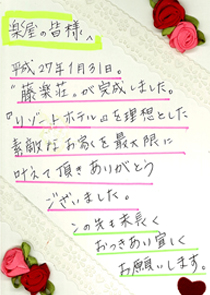 楽屋の皆様へ
平成27年1月31日。
“藤楽荘”が完成しました。
『リゾートホテル』を理想とした
素敵なお家を最大限に
叶えて頂きありがとう
ございました。
この先も末長く
おつきあい宜しく
お願いします。